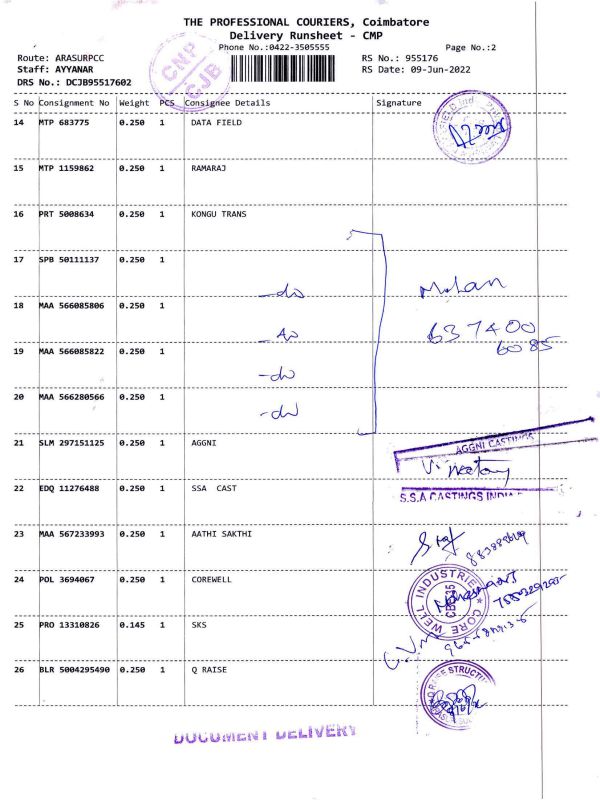 THE PROFESSIONAL COURIERS, Coimbatore
Delivery Runsheet - CMP
Phone No.:0422-3505555 Page No.:2
Route: ARASURPCC RS No.: 955176
Staff: AYYANAR RS Date: 09-Jun-2022
DRS No.: DCJB95517602
CNP
CJB
S No Consignment No Weight PCS Consignee Details Signature
14 MTP 683775 0.250 1 DATA FIELD
15 MTP 1159862 0.250 1 RAMARAJ
16 PRT 5008634 0.250 1 KONGU TRANS
17 SPB 50111137 0.250 1
-do
18 MAA 566085806 0.250 1
-do
637400
6085
19 MAA 566085822 0.250 1
-do
20 MAA 566280566 0.250 1
-do
21 SLM 297151125 0.250 1 AGGNI
AGGNI CASTINGS
22 EDQ 11276488 0.250 1 SSA CAST
S.S.A CASTINGS INDIA
23 MAA 567233993 0.250 1 AATHI SAKTHI
24 POL 3694067 0.250 1 COREWELL
CORE WELL INDUSTRIES
25 PRO 13310826 0.145 1 SKS
26 BLR 5004295490 0.250 1 Q RAISE
DOCUMENT DELIVERY